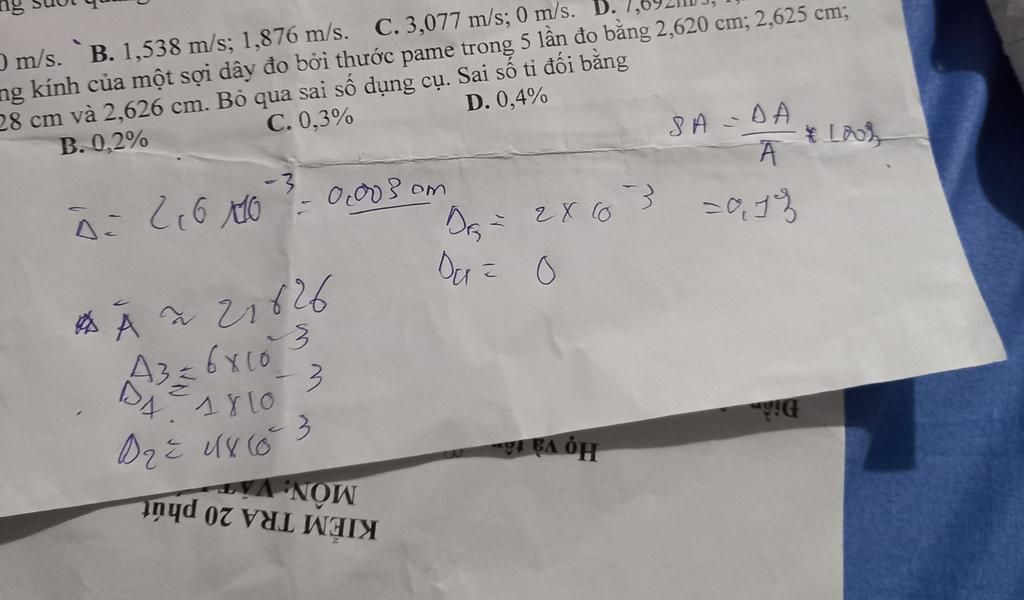 0 m/s. B. 1,538 m/s; 1,876 m/s. C. 3,077 m/s; 0 m/s. D. 7,692m/s;
ng kính của một sợi dây đo bởi thước pame trong 5 lần đo bằng 2,620 cm; 2,625 cm;
28 cm và 2,626 cm. Bỏ qua sai số dụng cụ. Sai số tỉ đối bằng
B. 0,2% C. 0,3% D. 0,4%
δA = ΔA / A × 100%
= 0,1%
Δ = 2,6 × 10⁻³ = 0,003 cm
Δ5 = 2 × 10⁻³
Δ4 = 0
A ≈ 2,626
Δ3 = 6×10⁻³
Δ1 = 1×10⁻³
Δ2 = 4×10⁻³
Điểm
Họ và tên
MÔN: VẬT
KIỂM TRA 20 phút